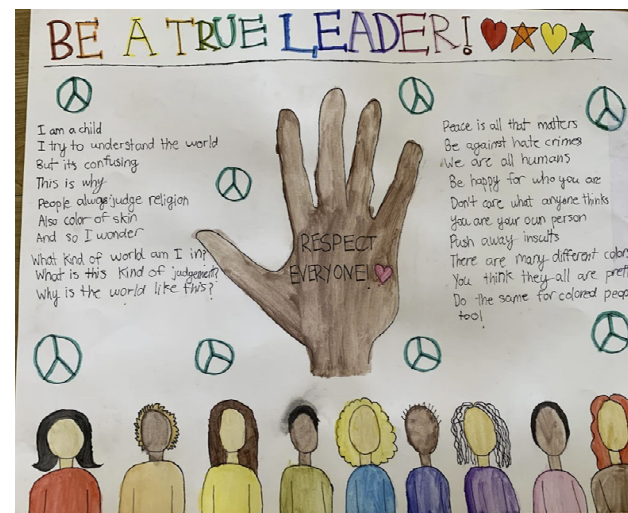 BE A TRUE LEADER!
I am a child
I try to understand the world
But its confusing
This is why
People always judge religion
Also color of skin
And so I wonder
What kind of world am I in?
What is this kind of judgement?
Why is the world like this?
RESPECT
EVERYONE!
Peace is all that matters
Be against hate crimes
We are all humans
Be happy for who you are
Don't care what anyone thinks
You are your own person
Push away insults
There are many different
You think they all are
Do the same for colored
too!